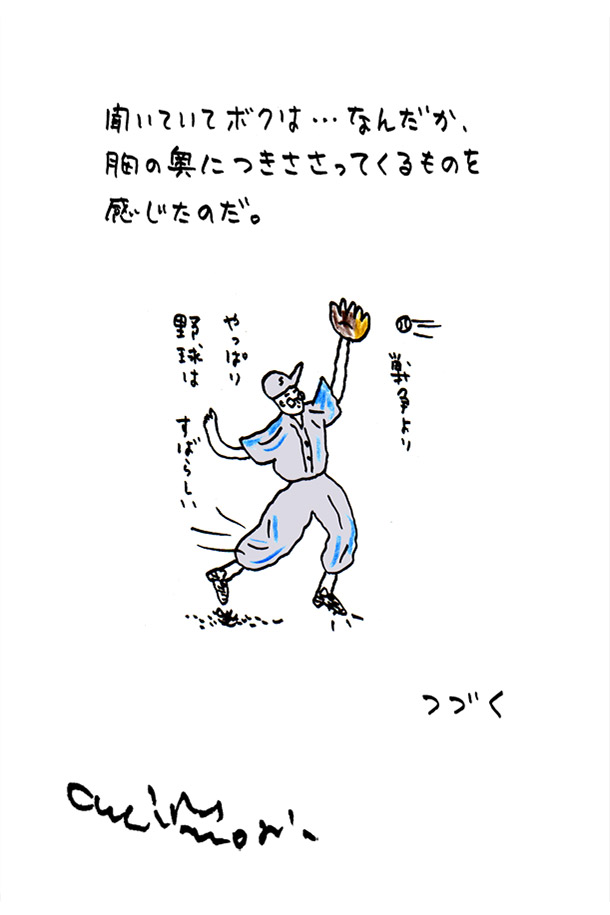 聞いていてボクは…なんだか、
胸の奥につきささってくるものを
感じたのだ。
戦争より
やっぱり
野球は
すばらしい
つづく